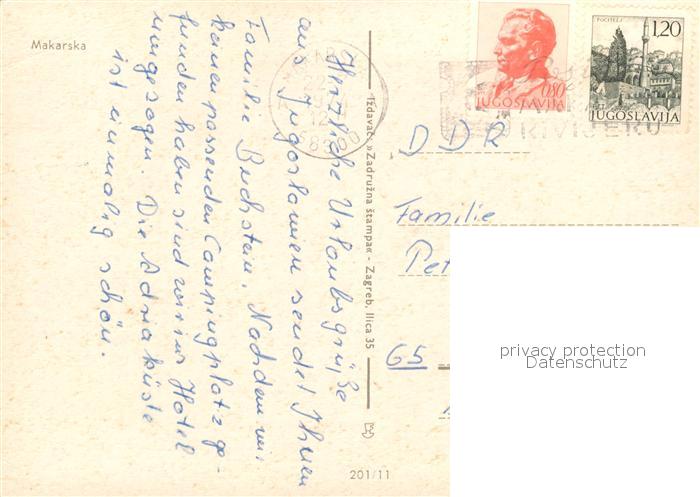 Makarska
Herzliche Urlaubsgrüße
aus Jugoslawien sendet Ihnen
Familie Buchstein. Nachdem wir
keinen passenden Campingplatz ge-
funden haben sind wir ins Hotel
umgezogen. Die Adriaküste
ist einmalig schön.
Izdavač »Zadružna štampa« - Zagreb. Ilica 35
201/11
0,80
JUGOSLAVIJA
POČITELJ
1,20
JUGOSLAVIJA
RIVIJERU
DDR
Familie
Pet
65
privacy protection
Datenschutz